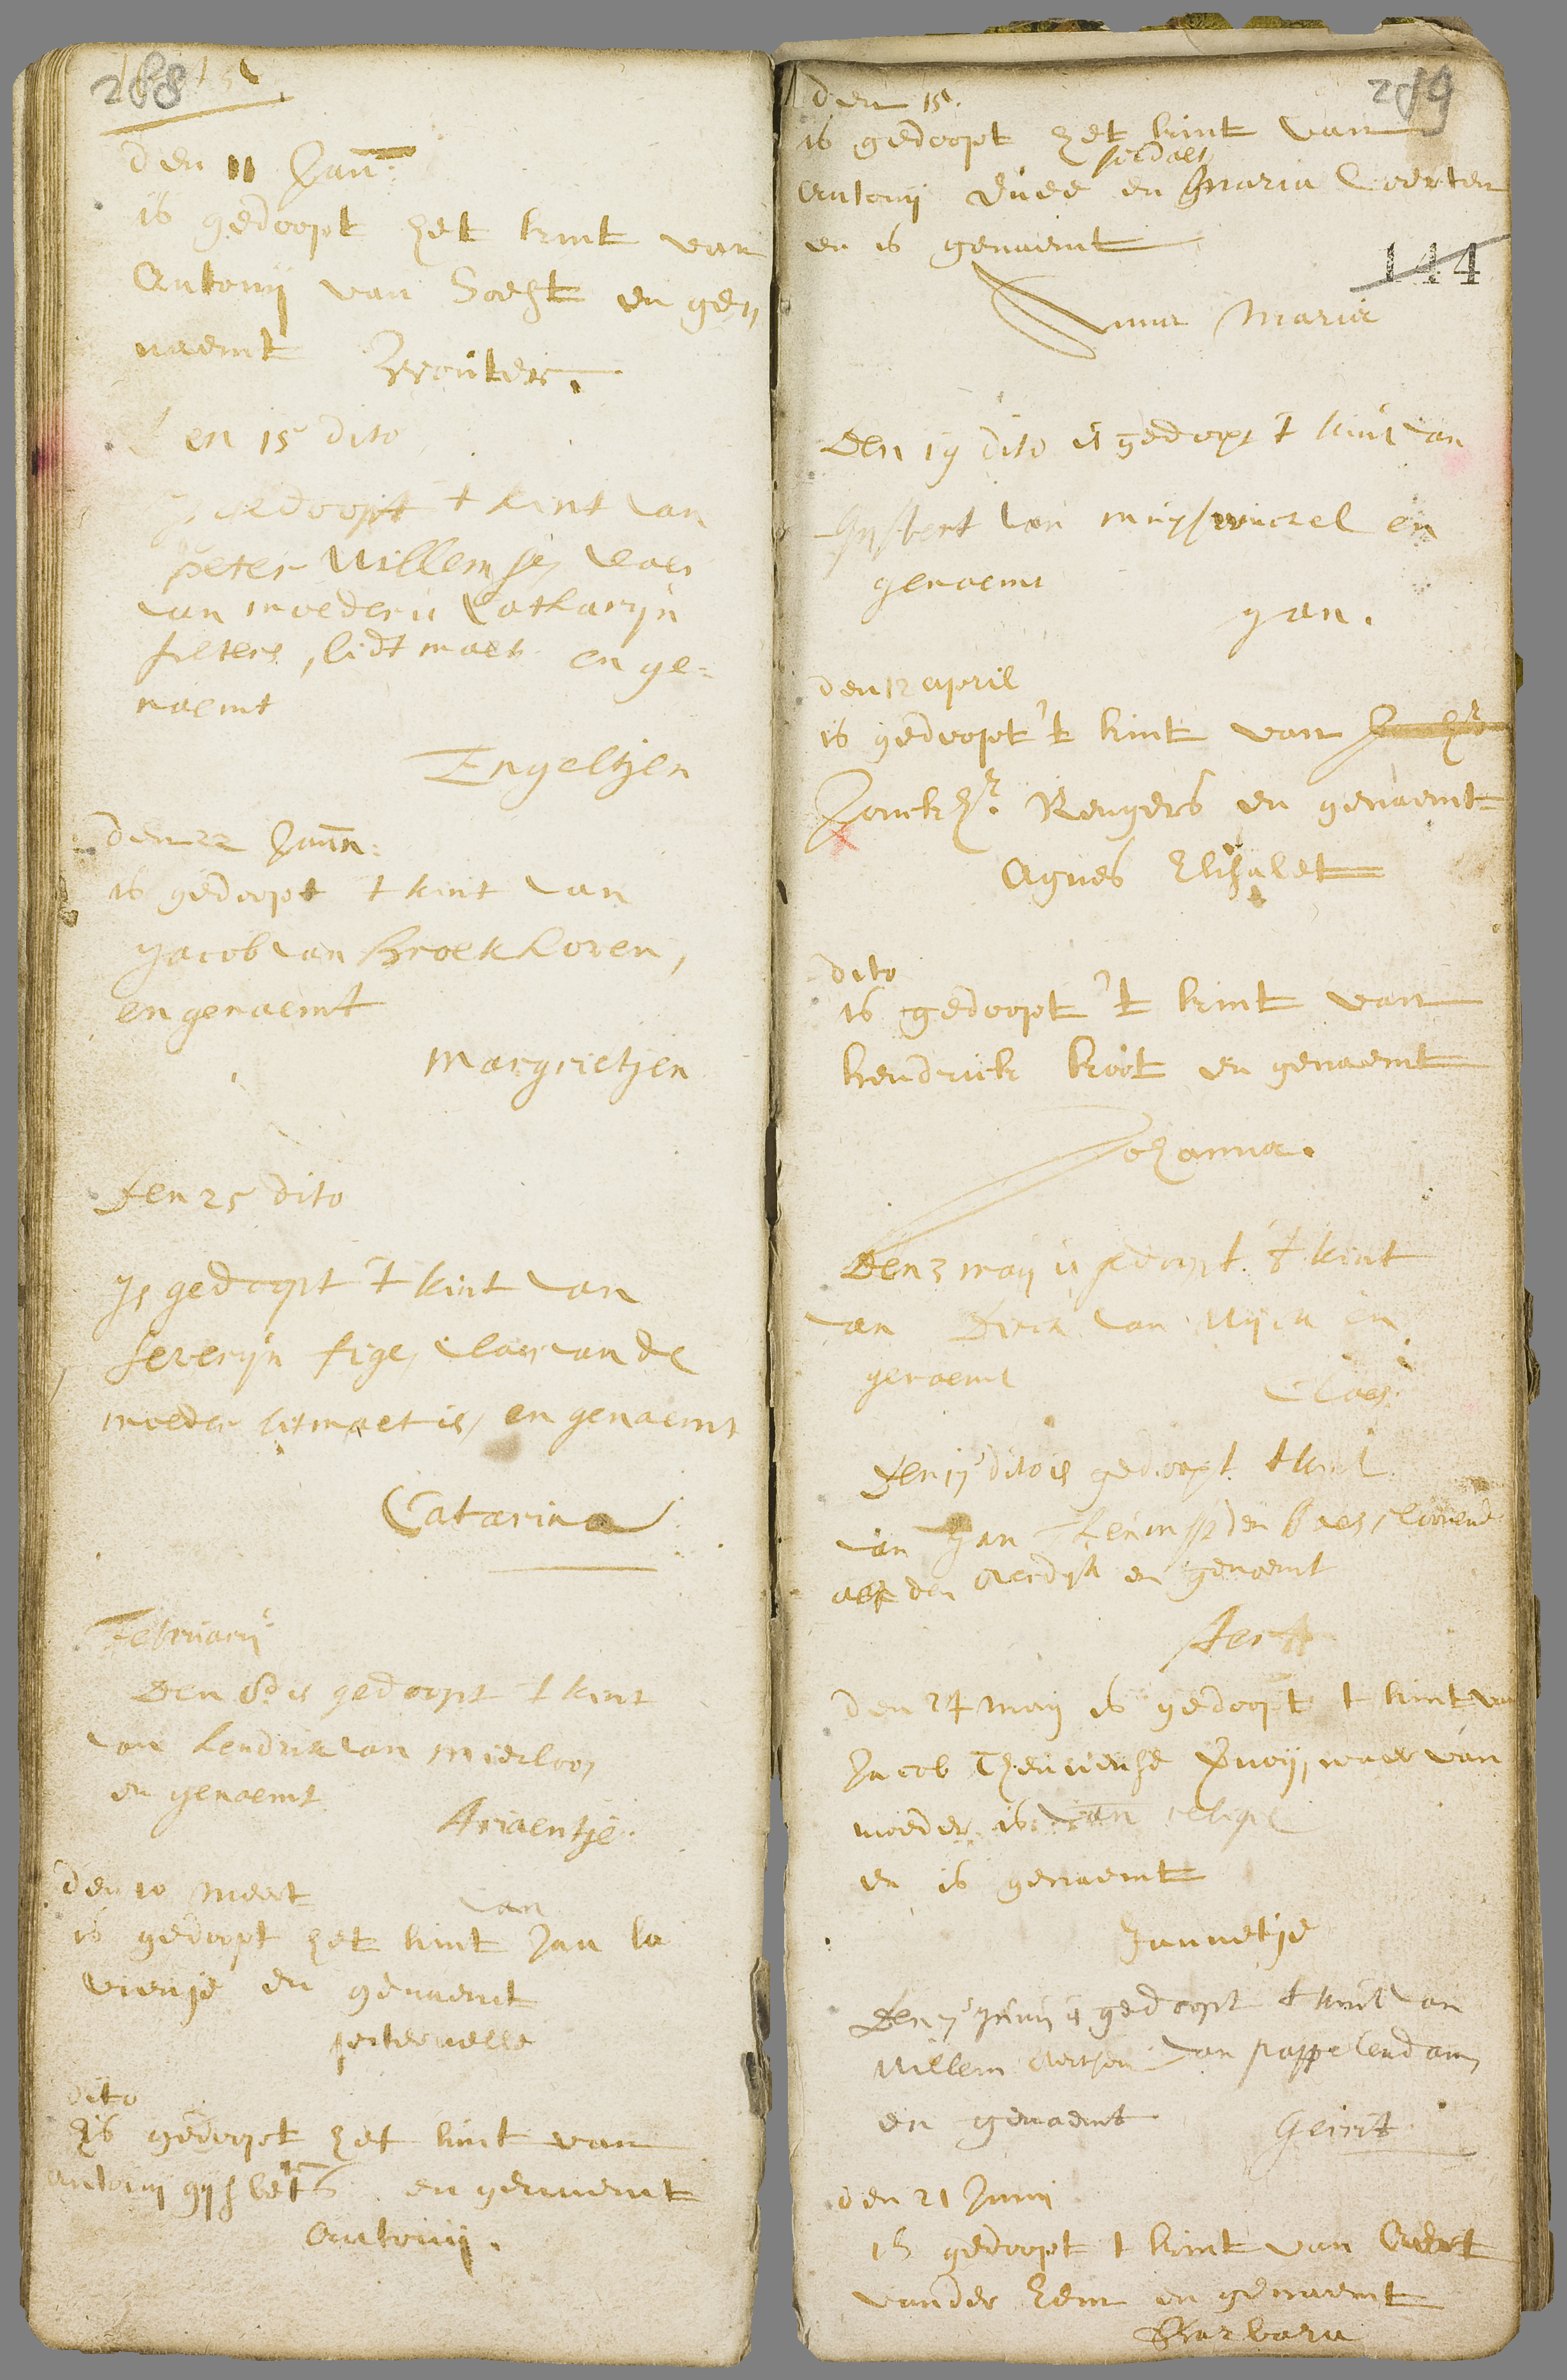 288
den 11 Jan:
is gedoopt het kint van
Antonij van Soest en ge„
naemt Wouter.
den 15 dito
Is gedoopt t kint van
peter Willemse, waer
van moeder is Catharijn
peters, lidtmaet en ge=
naemt
Engeltjen
den 22 Jann:
is gedoopt t kint van
Jacob van Broekhoven,
en genaemt
Margrietjen
den 25 dito
Is gedoopt t kint van
severijn waer van de
moeder litmaet is, en genaemt
Catarina
Februarij
Den 8 is gedoopt t kint
van hendrik van mierloo,
en genaemt
Ariaentje.
den 10 meert
van
is gedoopt het kint Jan la
en genaemt
peternelle
dito
Is gedoopt het kint van
antonij gijsberts en genaemt
Antonij.
289
den 15.
is gedoopt het kint van
Antonij en Maria Coerten
en is genaemt
144
Anna Maria
Den 19 dito is gedoopt t kint van
Gijsbert van muijswinckel en
genaemt
Jan.
den 12 april
is gedoopt 't kint van
Jonckhr Rengers en genaemt
Agnes Elisabet
dito
is gedoopt 't kint van
hendrick koot en genaemt
Johanna.
Den 3 maij is gedoopt 't kint
van Dirck van Wijck en
genaemt Claes.
Den 17 dito is gedoopt t kint
van Jan
den en genaemt
den 24 maij is gedoopt t kint van
Jacob waer van
moeder is van
en is genaemt
Jannetje
Den 7 Junij is gedoopt t kint van
Willem Aertsen van pappelendam,
en genaemt Gerrit
den 21 Junij
is gedoopt t kint van Evert
vander Eem en genaemt
Barbara